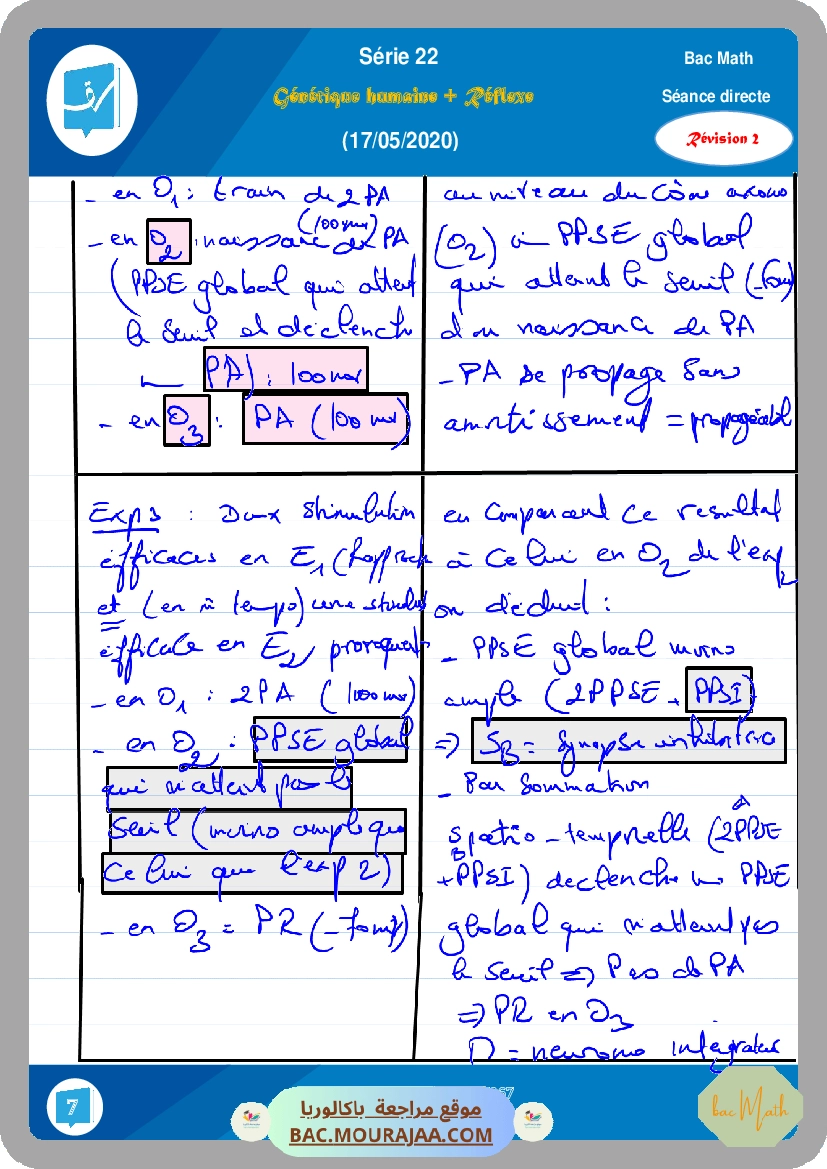 Série 22
Bac Math
Génétique humaine + Réflexe
Séance directe
(17/05/2020)
Révision 2
- en O1 : train de 2 PA
(100mv)
- en O2 : naissance de PA
(PPSE global qui atteint
le seuil et déclenche
PA) : 100mv
- en O3 : PA (100 mv)
au niveau du cône axono
(O2) un PPSE global
qui atteint le seuil
d'ou naissance de PA
- PA se propage sans
amortissement = propageable
Exp3 : Deux stimulation
efficaces en E1 (Rapproch
et (en m̂ temps) une stimulat
efficace en E2 provoquent
- en O1 : 2PA (100mv)
- en O2 : PPSE global
qui n'atteint pas le
seuil (moins ample que
celui que l'exp 2)
- en O3 = PR (-70mv)
en comparant ce resultat
à celui en O2 de l'exp2
on déduit :
- PPSE global moins
ample (2PPSE + PPSI)
=> SB = synapse inhibitrice
- Par sommation
spatio-temporelle (2PPSE
+PPSI) declenche un PPSE
global qui n'atteint pas
le seuil => Pas de PA
=> PR en O3
D = neurone integrateur
7
موقع مراجعة باكالوريا
BAC.MOURAJAA.COM
bac Math